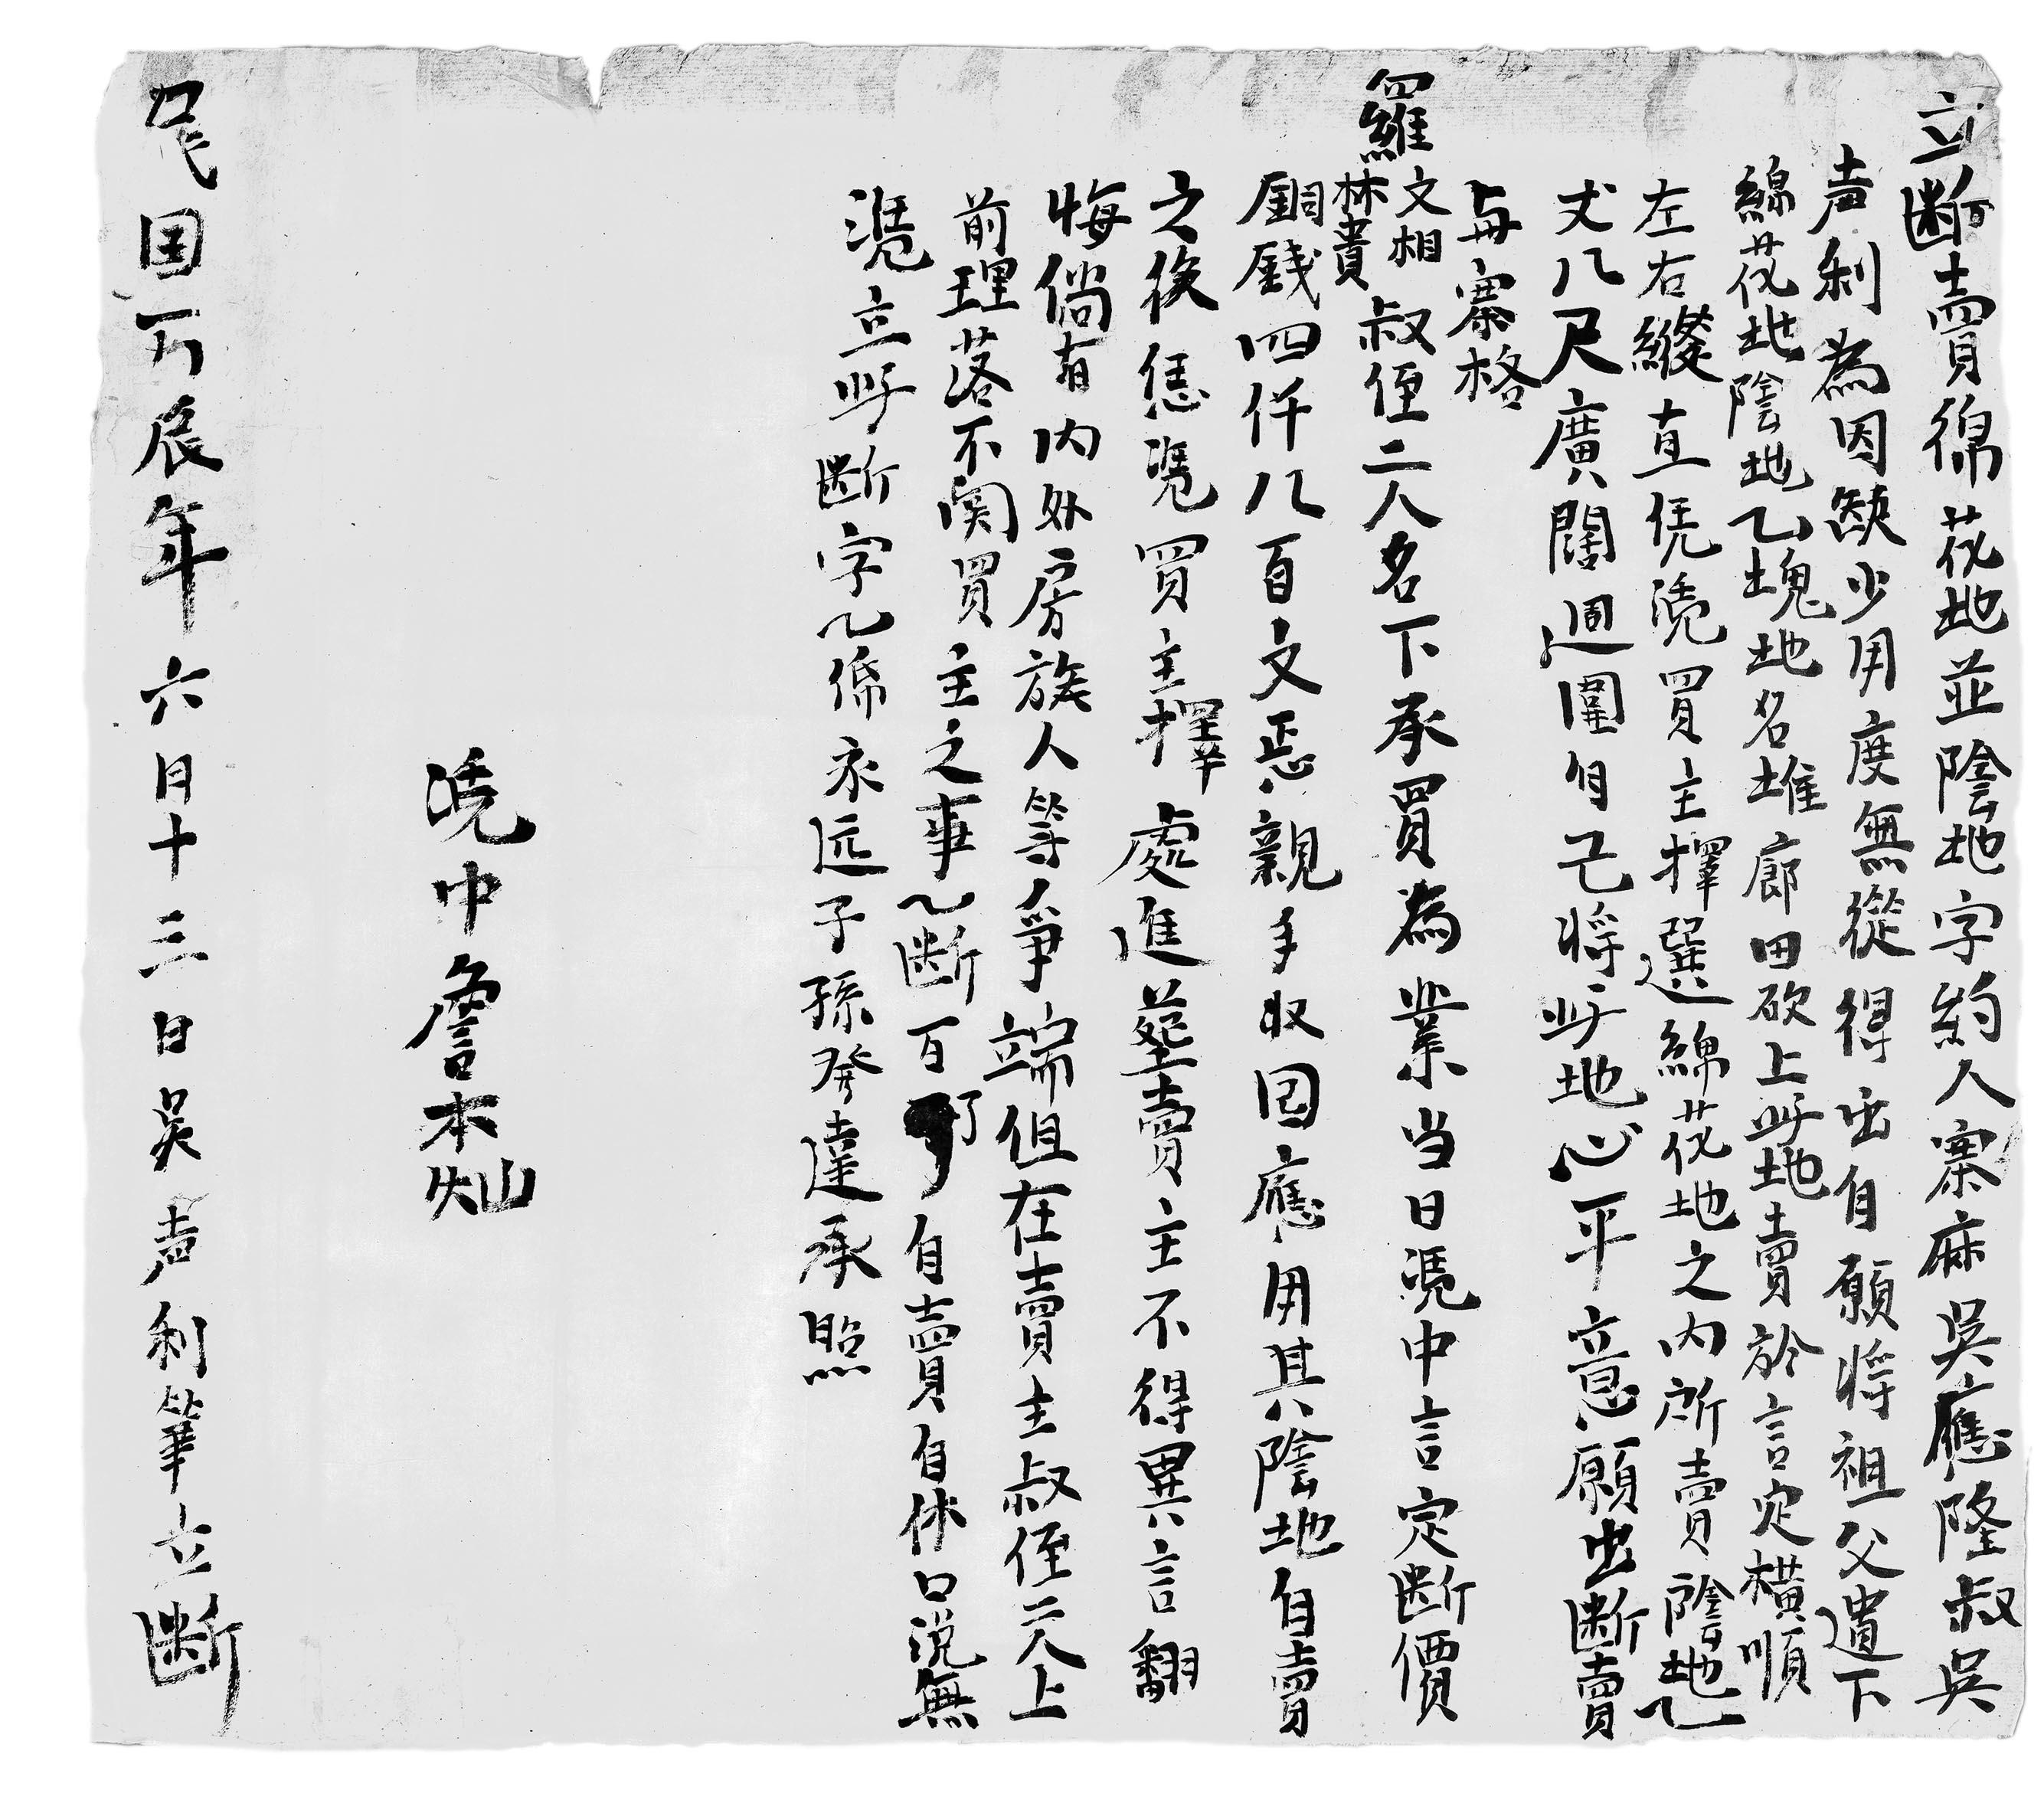 立断賣綿花地並陰地字約人寨麻吳應隆叔吳
声利為因缺少用度無從得出自願将祖父遺下
綿花地陰地乙塊地名堆廊田砍上此地賣於言定横順
左右縱直凭凴買主擇選綿花地之内所賣陰地乙
丈八尺廣闊週圍自己将此地心平意願出断賣
与每寨格
羅文相林貴叔侄二人名下承買為業当日凴中言定断價
銅銭四仟八百文恁親手收回應用其陰地自賣
之後恁凴買主擇處進塟賣主不得異言翻
悔倘有内外房族人等爭端但在賣主叔侄二人上
前理落不関買主之事乙断百了自賣自休口説無
凴立此断字乙㡭永远子孫發達承照
凴中詹本灿
民国丙辰年六月十三日吴声利筆立断